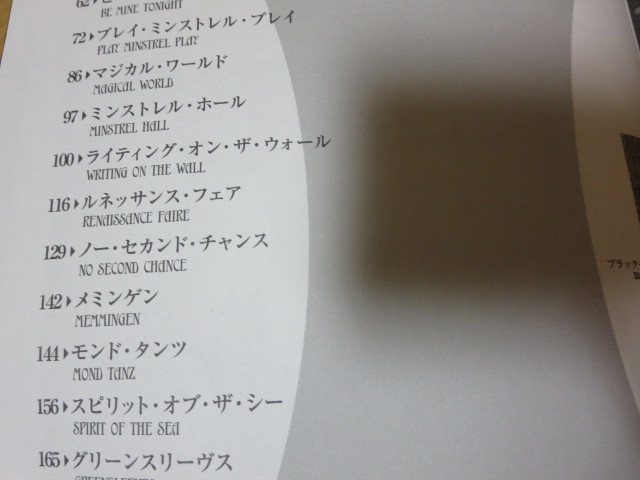 62
BE MINE TONIGHT
72▶プレイ・ミンストレル・プレイ
PLAY MINSTREL PLAY
86▶マジカル・ワールド
MAGICAL WORLD
97▶ミンストレル・ホール
MINSTREL HALL
100▶ライティング・オン・ザ・ウォール
WRITING ON THE WALL
116▶ルネッサンス・フェア
RENAISSANCE FAIRE
129▶ノー・セカンド・チャンス
NO SECOND CHANCE
142▶メミンゲン
MEMMINGEN
144▶モンド・タンツ
MOND TANZ
156▶スピリット・オブ・ザ・シー
SPIRIT OF THE SEA
165▶グリーンスリーヴス
GREENSLEEVES
ブラック